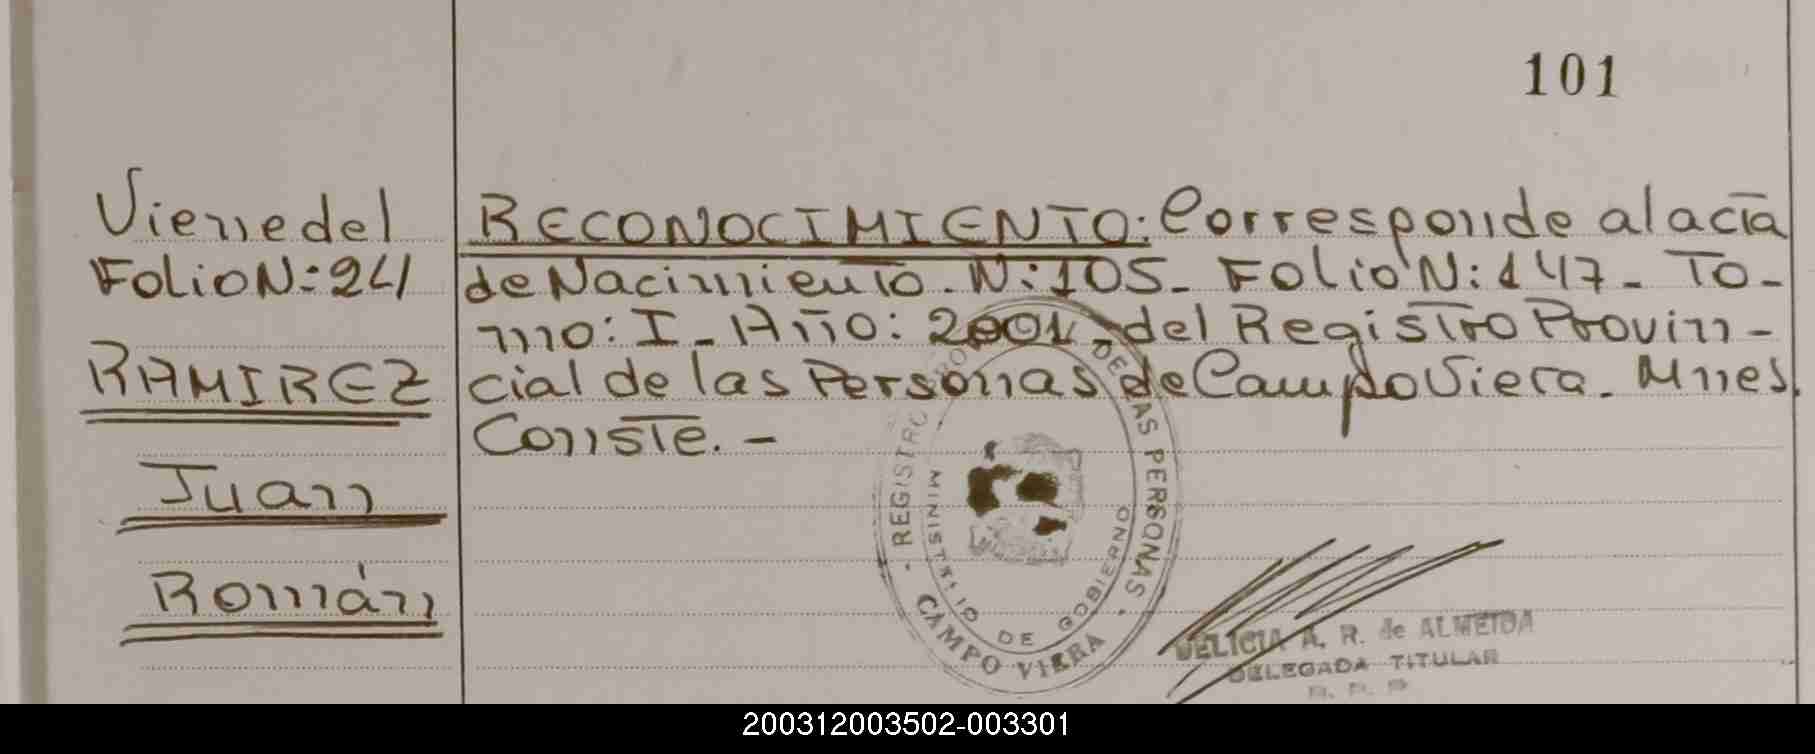 101
Viene del
Folio N: 241
RAMIREZ
Juan
Román
RECONOCIMIENTO: Corresponde al acta
de Nacimiento. N: 105_ Folio N: 147_ To-
mo: I_ Año: 2001_ del Registro Provin-
cial de las Personas de Campo Viera. Mnes.
Conste. -
REGISTRO DE LAS PERSONAS
MINISTERIO DE GOBIERNO
CAMPO VIERA
DELICIA A. R. de ALMEIDA
DELEGADA TITULAR
200312003502-003301